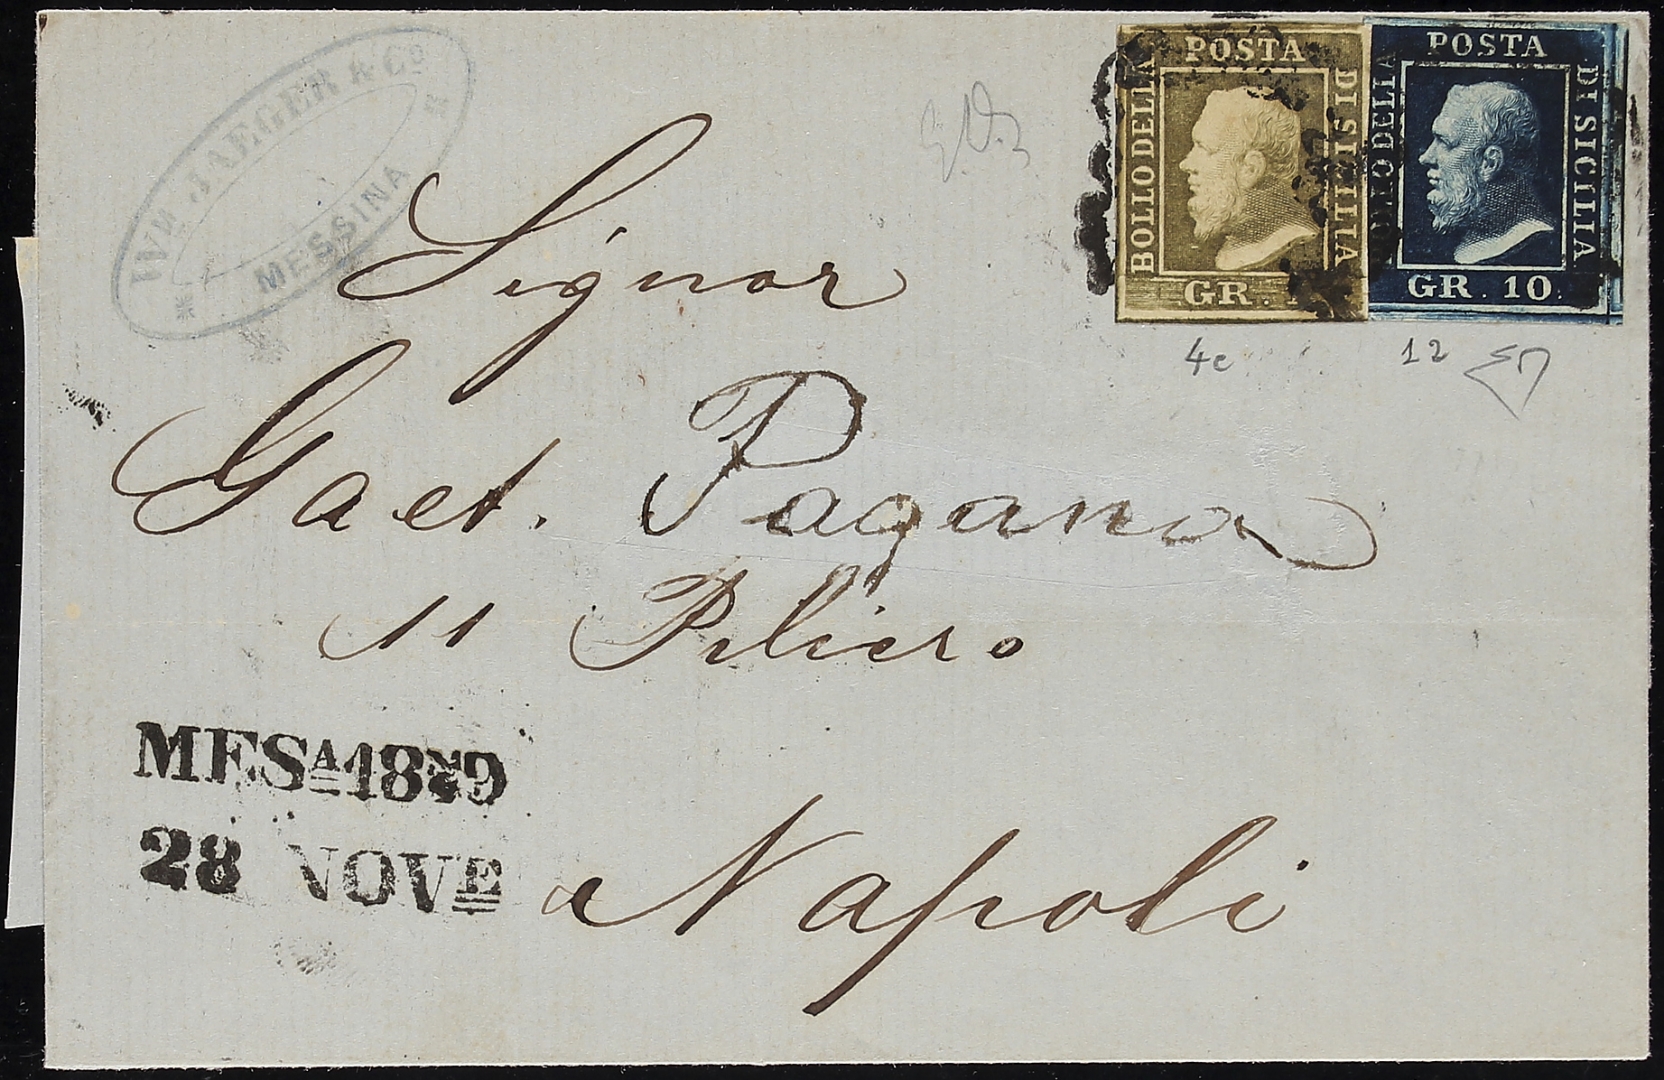 Wm JAEGER & Co
MESSINA
POSTA
BOLLO DELLA
DI SICILIA
GR. 1
POSTA
BOLLO DELLA
DI SICILIA
GR. 10.
4c
12
Signor
Gaet. Pagano
11 Piliero
a Napoli
MESA 18
28 NOVE